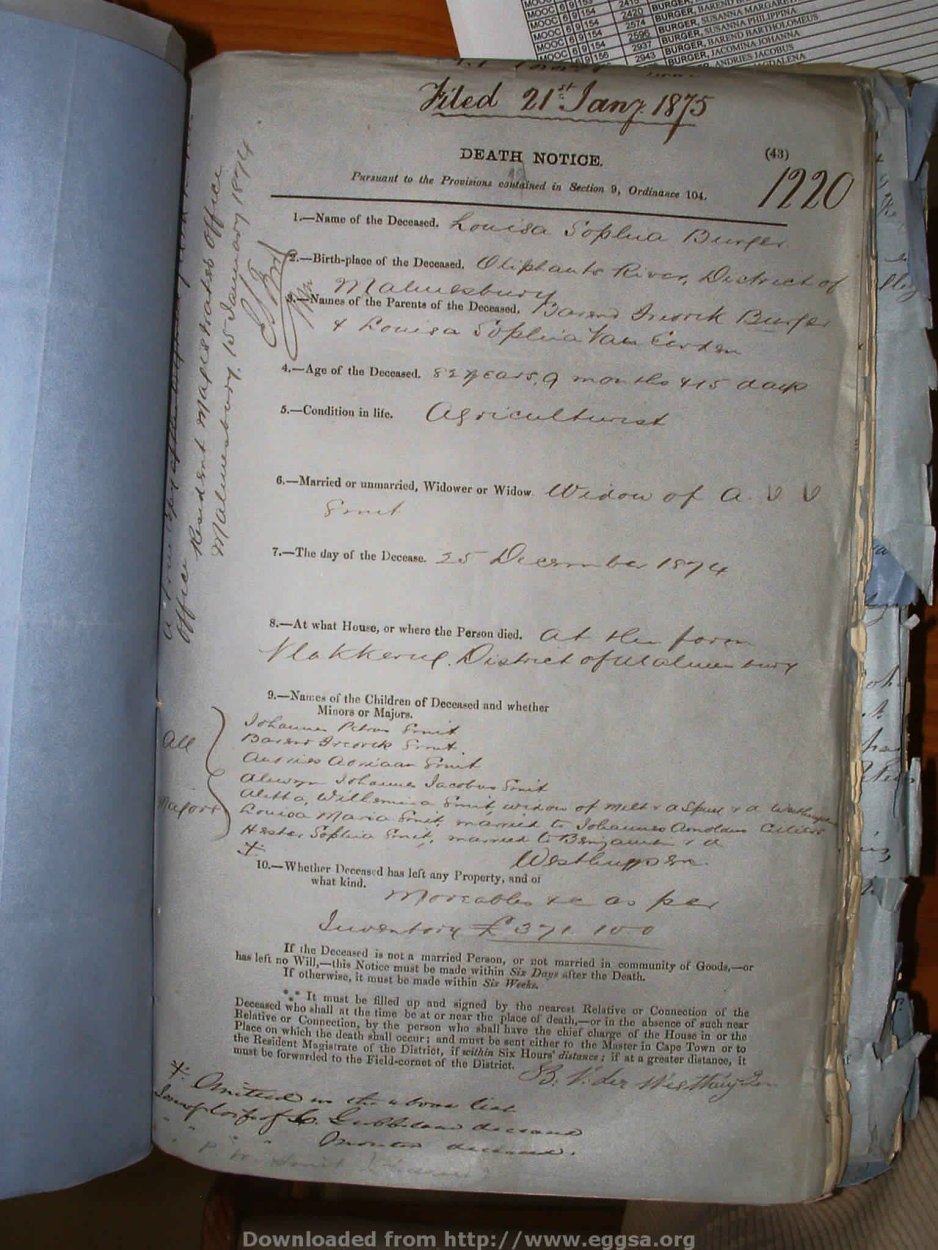 MOOC 6 9 154 2574 BURGER, SUSANNA PHILIPPINA
MOOC 6 9 154 2595 BURGER, BAREND BARTHOLOMEUS
MOOC 6 9 154 2937 BURGER, JACOMINA JOHANNA
2943 ANDRIES JACOBUS
Filed 21st Jany 1875
DEATH NOTICE.
(43)
Pursuant to the Provisions contained in Section 9, Ordinance 104.
1220
1.—Name of the Deceased. Louisa Sophia Burger
2.—Birth-place of the Deceased. Oliphants River, District of
Malmesbury
3.—Names of the Parents of the Deceased. Barend Frederik Burger
& Louisa Sophia Van
4.—Age of the Deceased. 82 years, 9 months & 15 days
5.—Condition in life. Agriculturist
6.—Married or unmarried, Widower or Widow. Widow of A. V V
Smit
7.—The day of the Decease. 25 December 1874
8.—At what House, or where the Person died. At the farm
District of Malmesbury
9.—Names of the Children of Deceased and whether
Minors or Majors.
Johannes Petrus Smit
Barend Frederik Smit.
Andries Adriaan Smit
Alewyn Johannes Jacobus Smit
Aletta Willemina Smit, widow of
Louisa Maria Smit, married to Johannes Arnoldus
Hester Sophia Smit, married to Benjamin v d
Westhuyzen.
All
Majors
10.—Whether Deceased has left any Property, and of
what kind.
Moveables &c as per
Inventory £ 371. 10 0
If the Deceased is not a married Person, or not married in community of Goods,—or
has left no Will,—this Notice must be made within Six Days after the Death.
If otherwise, it must be made within Six Weeks.
*** It must be filled up and signed by the nearest Relative or Connection of the
Deceased who shall at the time be at or near the place of death,—or in the absence of such near
Relative or Connection, by the person who shall have the chief charge of the House in or the
Place on which the death shall occur; and must be sent either to the Master in Cape Town or to
the Resident Magistrate of the District, if within Six Hours' distance; if at a greater distance, it
must be forwarded to the Field-cornet of the District.
B. V. der Westhuyzen
Omitted in the above list
deceased
deceased.
Office Resident Magistrates Office
Malmesbury, 15 January 1874
Downloaded from http://www.eggsa.org